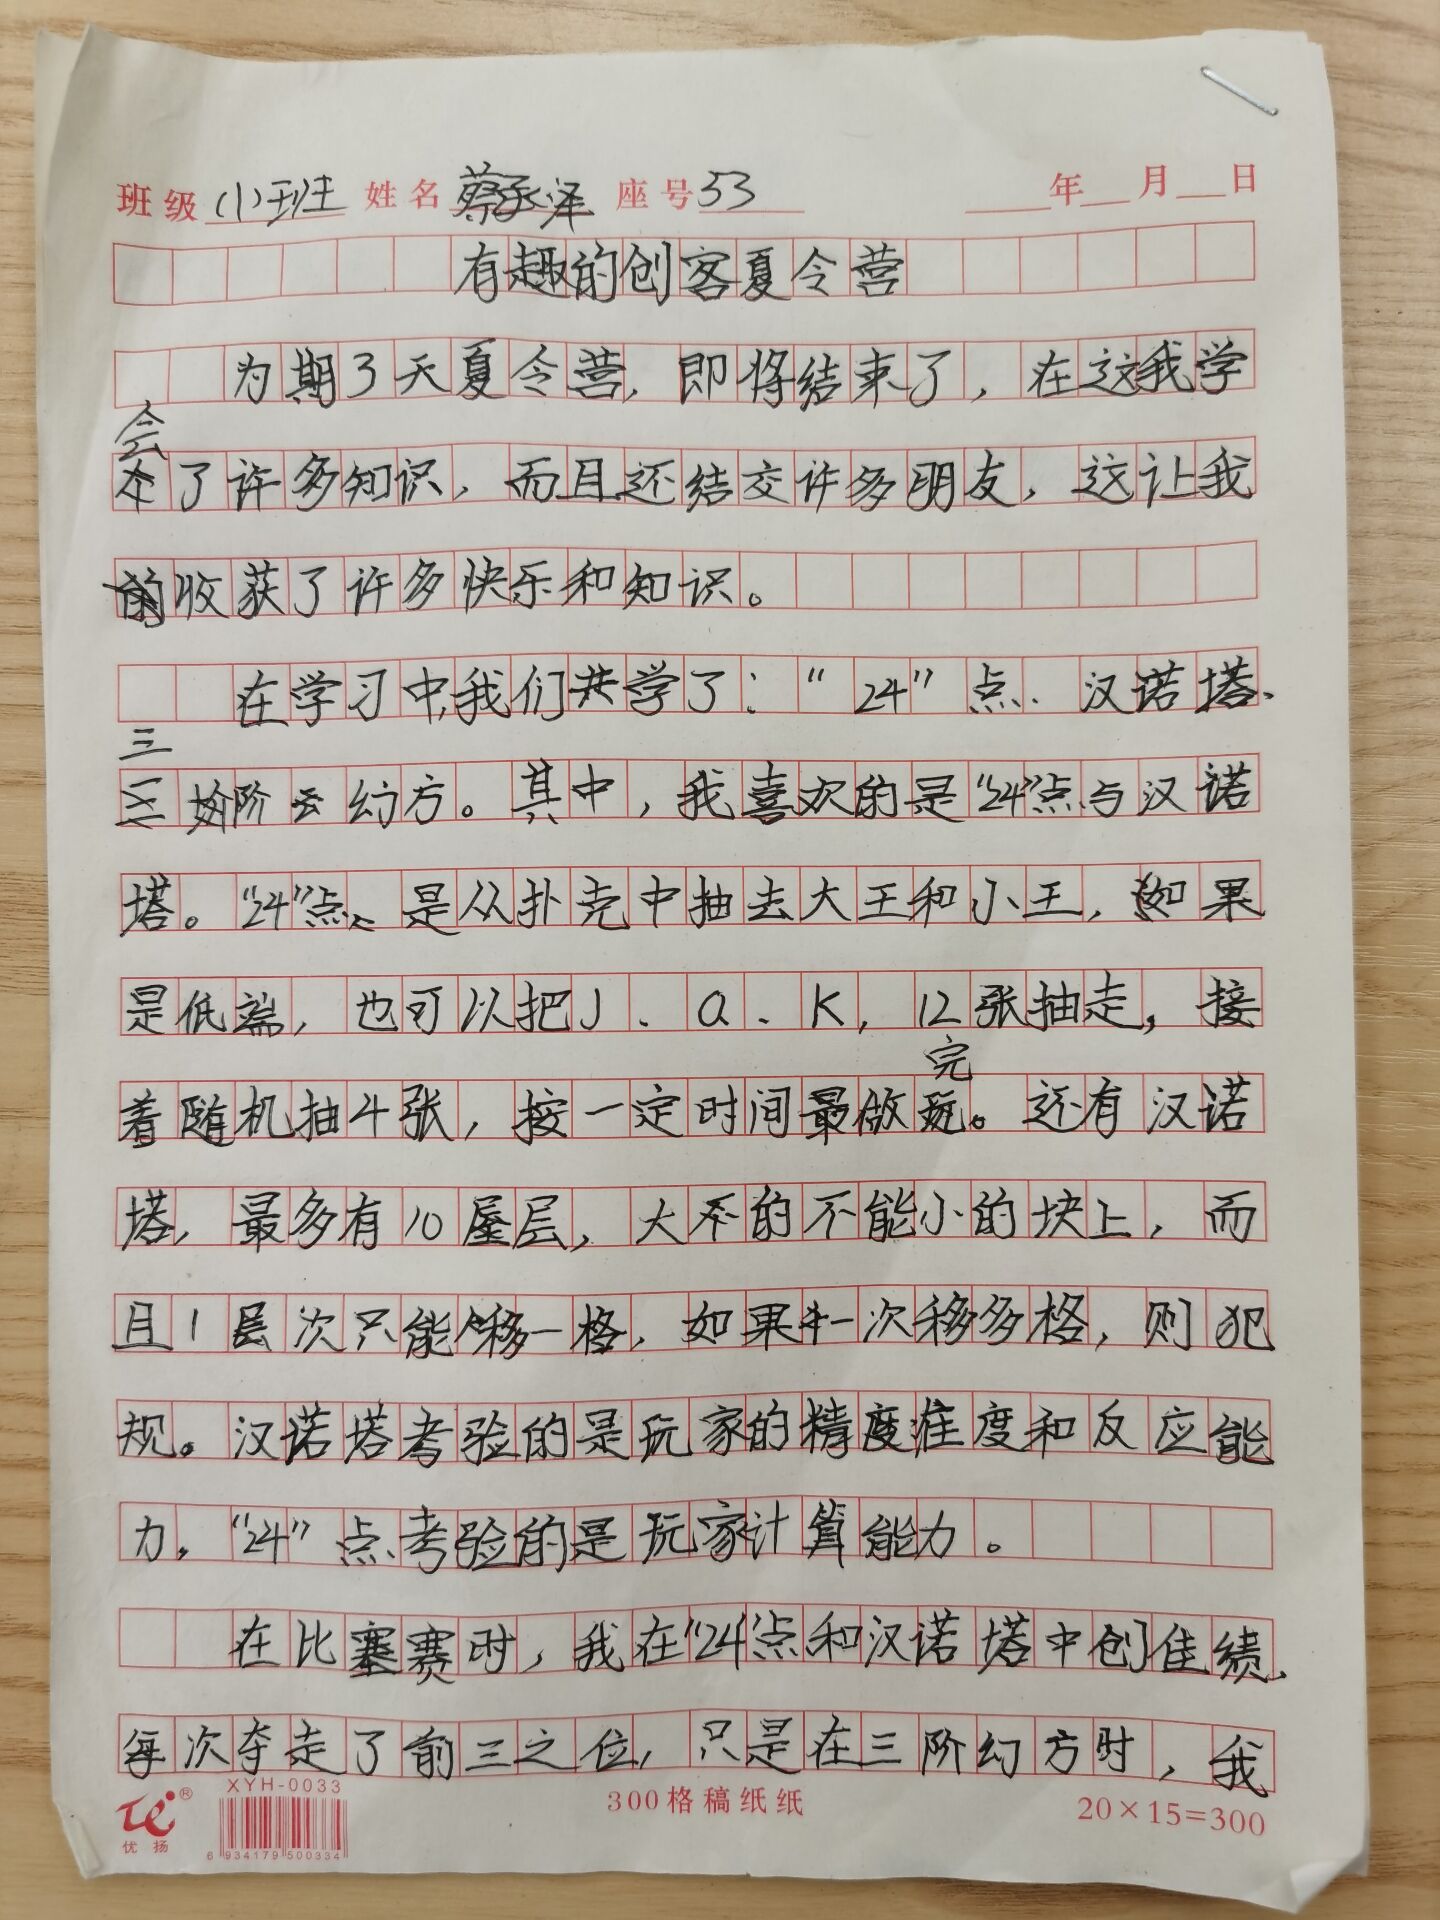 班级 (1)班 姓名 蔡承泽 座号 53 年 月 日
有趣的创客夏令营
为期3天夏令营，即将结束了，在这我学
会
了许多知识，而且还结交许多朋友，这让我
收获了许多快乐和知识。
在学习中，我们共学了：“24”点、汉诺塔、
三
阶幻方。其中，我喜欢的是“24”点与汉诺
塔。“24”点、是从扑克中抽去大王和小王，如果
是低端，也可以把J、Q、K，12张抽走，接
完
着随机抽4张，按一定时间最做。还有汉诺
塔，最多有10层，大的不能小的块上，而
且1层次只能移一格，如果一次移多格，则犯
规。汉诺塔考验的是玩家的精准度和反应能
力，“24”点考验的是玩家计算能力。
在比赛时，我在“24”点和汉诺塔中创佳绩，
每次夺走了前三之位，只是在三阶幻方时，我
XYH-0033
优扬
6 934179 500334
300格稿纸纸
20×15=300